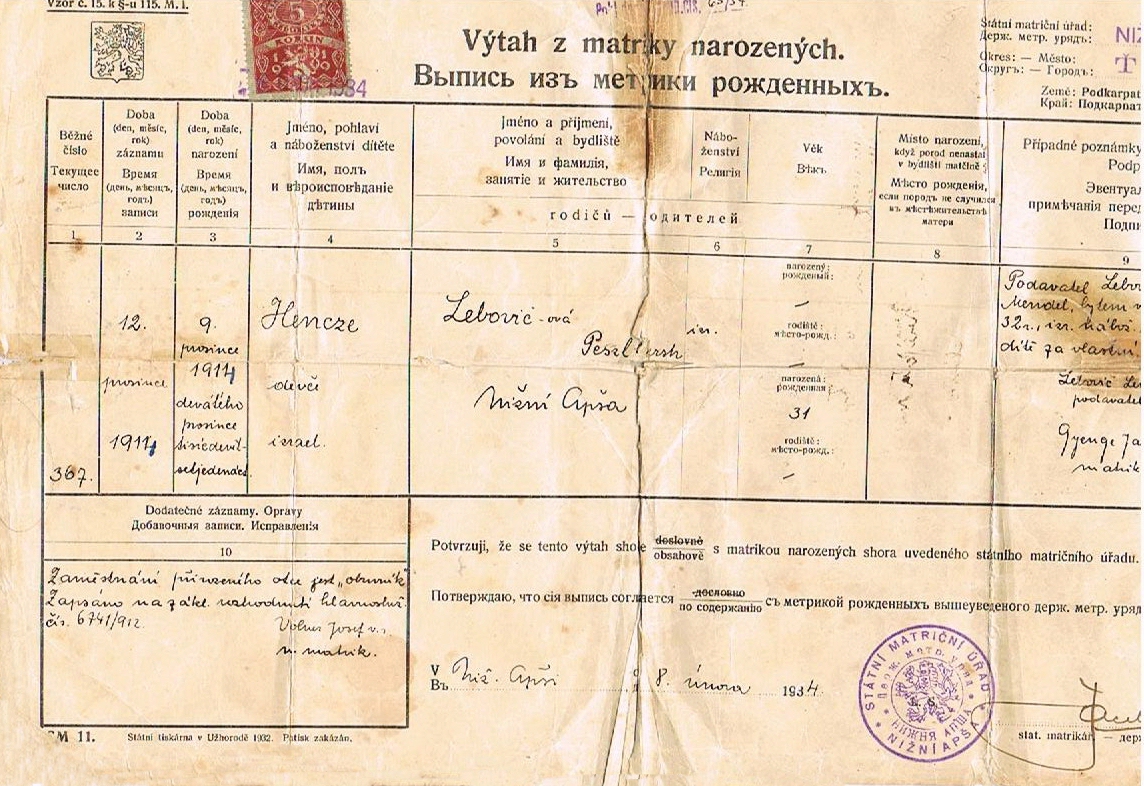 Vzor č. 15. k §-u 115. M. I.
5
KORUN
Výtah z matriky narozených.
Выпись изъ метрики рожденныхъ.
Státní matriční úřad:
Держ. метр. урядъ:
Okres: — Město:
Округъ: — Городъ:
Země: Podkarpat
Край: Подкарпат
Běžné číslo
Текущее число
Doba (den, měsíc, rok) záznamu
Время (день, мѣсяцъ, годъ) записи
Doba (den, měsíc, rok) narození
Время (день, мѣсяцъ, годъ) рожденія
Jméno, pohlaví a náboženství dítěte
Имя, полъ и вѣроисповѣданіе дѣтины
Jméno a příjmení, povolání a bydliště
Имя и фамилія, занятіе и жительство
Nábo- ženství
Религія
Věk
Вѣкъ
rodičů — родителей
Místo narození, když porod nenastal v bydlišti matčině
Мѣсто рожденія, если породъ не случился въ мѣстѣжительствѣ матери
Případné poznámky
Podp
Эвентуал
примѣчанія перед
Подпи
1 2 3 4 5 6 7 8 9
367.
12.
prosince
1911
9.
prosince
1911
devátého
prosince
Hencze
děvče
israel.
Lebovič-ová
Nižní Apša
isr.
narozený:
рожденный:
—
rodiště:
мѣсто-рожд.:
narozená:
рожденная:
31
rodiště:
мѣсто-рожд.:
—
Podavatel Lebo
Mendel, bytem v
32 r., isr. nábož.
dítě za vlastní
podavatel
Dodatečné záznamy. Opravy
Добавочныя записи. Исправленія
10
Zaměstnání přirozeného otce jest „obuvník"
Zapsáno na zákl. rozhodnutí
čís. 6741/912.
Volner Josef v. r.
matrik.
Potvrzuji, že se tento výtah shoduje doslovně obsahově s matrikou narozených shora uvedeného státního matričního úřadu.
Потверждаю, что сія выпись согласуется дословно по содержанію съ метрикой рожденныхъ вышеуведеного держ. метр. уряд
V
Въ
Niž. Apši
8. února 1934
STÁTNÍ MATRIČNÍ ÚŘAD
НИЖНЯ АПША
NIŽNÍ APŠA
L. S.
stat. matrikář — держ
M 11.
Státní tiskárna v Užhorodě 1932. Patisk zakázán.